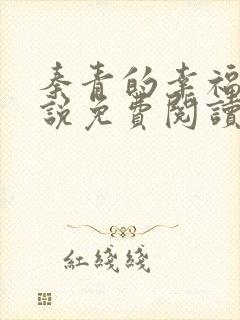 秦青的幸福
說免費閱讀
紅綫綫